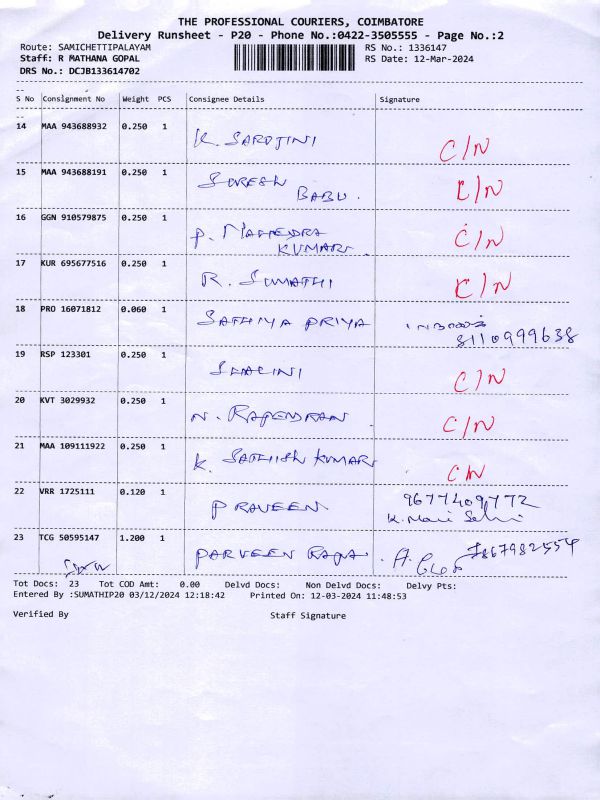 THE PROFESSIONAL COURIERS, COIMBATORE
Delivery Runsheet - P20 - Phone No.:0422-3505555 - Page No.:2
Route: SAMICHETTIPALAYAM RS No.: 1336147
Staff: R MATHANA GOPAL RS Date: 12-Mar-2024
DRS No.: DCJB133614702
S No Consignment No Weight PCS Consignee Details Signature
14 MAA 943688932 0.250 1 K. SAROJINI C/N
15 MAA 943688191 0.250 1 SURESH BABU. C/N
16 GGN 910579875 0.250 1 P. MAHENDRA KUMAR. C/N
17 KUR 695677516 0.250 1 R. SUMATHI C/N
18 PRO 16071812 0.060 1 SATHIYA PRIYA 8110999638
19 RSP 123301 0.250 1 SHALINI C/N
20 KVT 3029932 0.250 1 N. RAJENDRAN C/N
21 MAA 109111922 0.250 1 K. SATHISH KUMAR C/N
22 VRR 1725111 0.120 1 PRAVEEN 9677409772
K. Mani
23 TCG 50595147 1.200 1 PARVEEN RAJA.
Tot Docs: 23 Tot COD Amt: 0.00 Delvd Docs: Non Delvd Docs: Delvy Pts:
Entered By :SUMATHIP20 03/12/2024 12:18:42 Printed On: 12-03-2024 11:48:53
Verified By Staff Signature